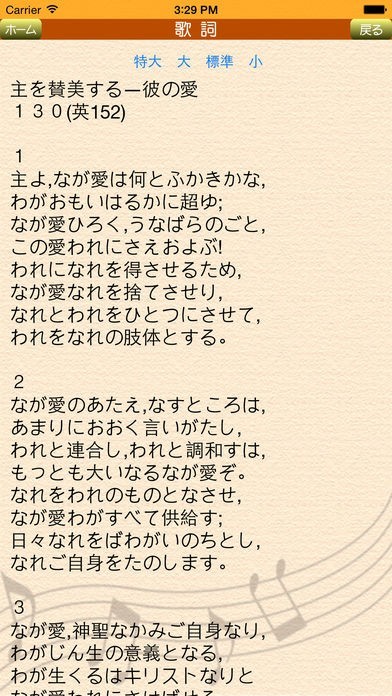 Carrier 3:29 PM
ホーム 歌 詞 戻る
特大 大 標準 小
主を賛美するー彼の愛
１３０(英152)
1
主よ,なが愛は何とふかきかな,
わがおもいはるかに超ゆ;
なが愛ひろく,うなばらのごと,
この愛われにさえおよぶ!
われになれを得させるため,
なが愛なれを捨てさせり,
なれとわれをひとつにさせて,
われをなれの肢体とする。
2
なが愛のあたえ,なすところは,
あまりにおおく言いがたし,
われと連合し,われと調和すは,
もっとも大いなるなが愛ぞ。
なれをわれのものとなさせ,
なが愛わがすべて供給す;
日々なれをばわがいのちとし,
なれご自身をたのします。
3
なが愛,神聖なかみご自身なり,
わがじん生の意義となる,
わが生くるはキリストなりと